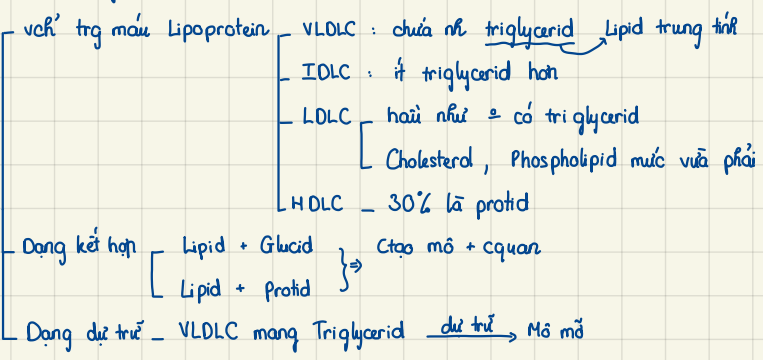 vch' trg máu Lipoprotein VLDLC : chứa nh triglycerid Lipid trung tính
IDLC : ít triglycerid hơn
LDLC hầu như º có triglycerid
Cholesterol, Phospholipid mức vừa phải
HDLC _ 30% là protid
Dạng kết hợp Lipid + Glucid ⇒ Ctạo mô + cquan
Lipid + Protid
Dạng dự trữ _ VLDLC mang Triglycerid dự trữ → Mô mỡ